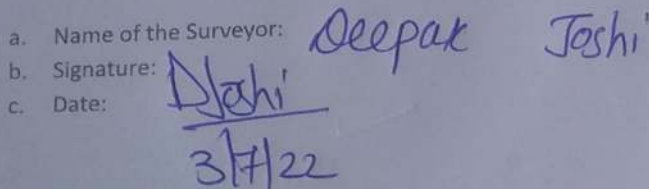 a. Name of the Surveyor: Deepak Joshi
b. Signature: DJoshi
c. Date:
3/7/22